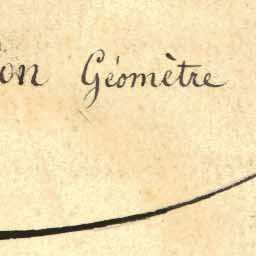 on Géomètre